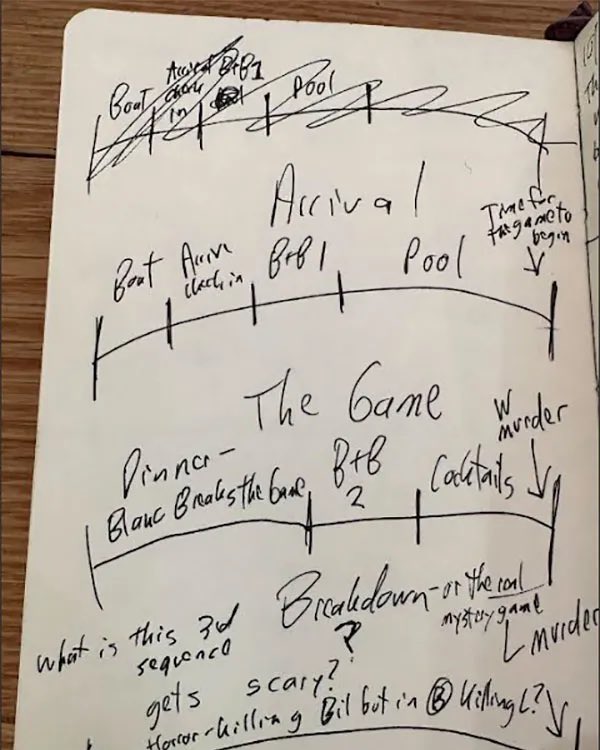 Boat Arrival check in B+B1 Pool
Arrival
Time for
the game to
begin
Boat Arrive check in B+B 1 Pool
The Game
W
murder
Dinner-
Blanc Breaks the Game
B+B
2
Cocktails
Breakdown - or the real
mystery game
?
L murder
what is this 3rd
sequence
gets scary?
Horror-killing Bil but in B killing L?